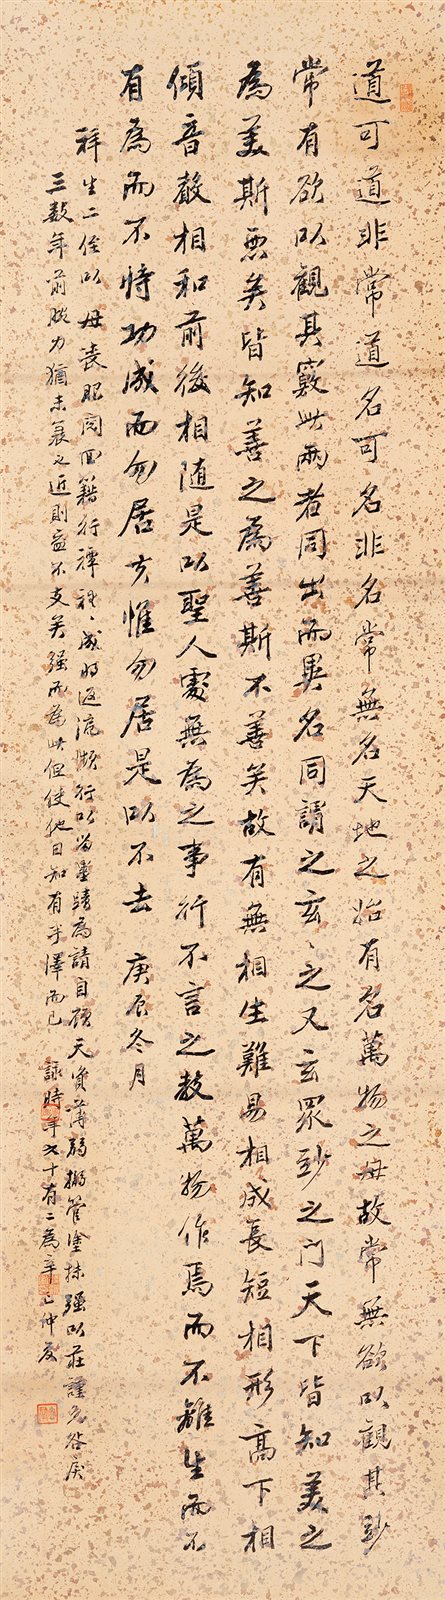 道可道非常道名可名非名常無名天地之始有名萬物之母故常無欲以觀其玅
常有欲以觀其竅此兩者同出而異名同謂之玄、之又玄眾玅之門天下皆知美之
為美斯惡矣皆知善之為善斯不善矣故有無相生難易相成長短相形高下相
傾音聲相和前後相随是以聖人處無為之事行不言之教萬物作焉而不離生而不
有為而不恃功成而勿居夫惟勿居是以不去 庚辰冬月
祥生二侄以母喪服闋回籍行禫禮、成將返滬瀕行以為請自顧天資薄弱搦管塗抹强以莊謹免咎戾
三數年前腕力猶未衰也近則益不支矣强而為此但使他日知有手澤而已 詠時年七十有二為辛巳仲夏